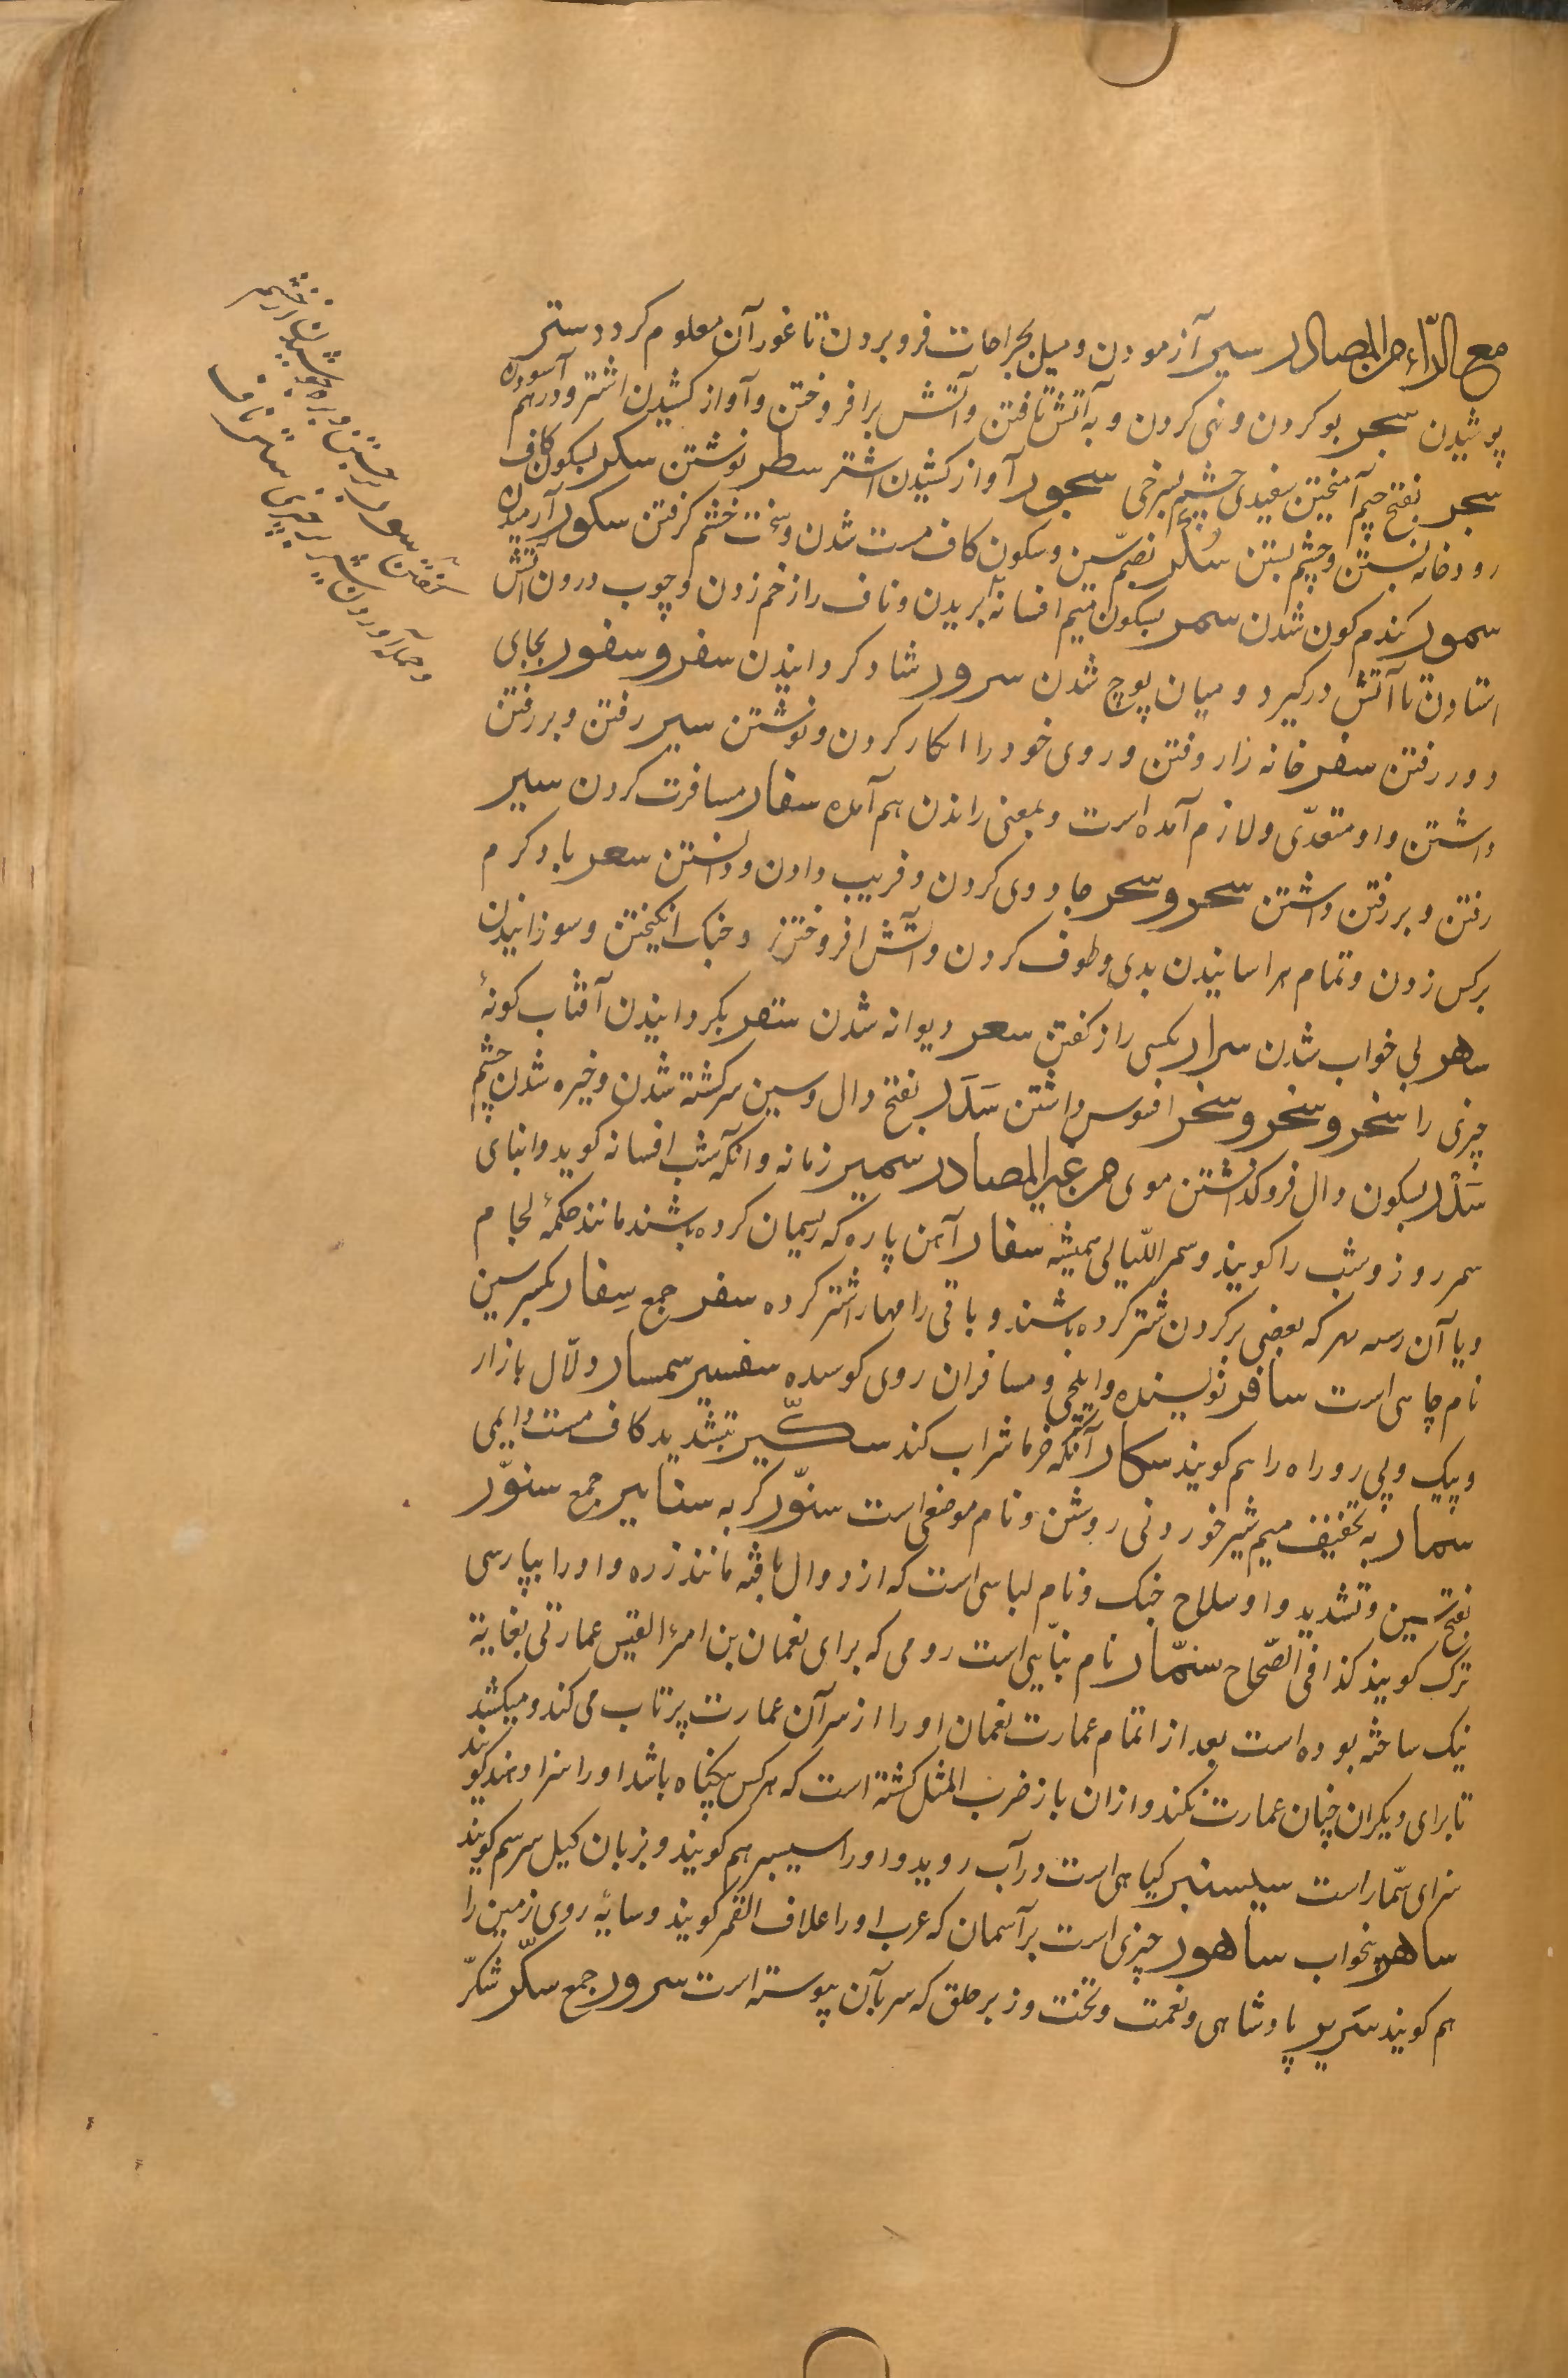 مع الرّاء من المصادر سبر آزمودن و میل بجراحات فرو بردن تا غور آن معلوم کردد ستر
پوشیدن سجر بو کردن و نهی کردن و به آتش تافتن و آتش برافروختن و آواز کشیدن اشتر و درهم آسودن
سجر بفتح جیم آمیختن سفیدی چشم بسرخی سجور آواز کشیدن اشتر سطر نوشتن سکر بسکون کاف
رودخانه بستن و چشم بستن سُکْر بضمّ سین و سکون کاف مست شدن و سخت خشم کرفتن سکور آرمیدن
سمور کندم کون شدن سمر بسکون میم افسانه بریدن و ناف را زخم زدن و چوب درون آتش
استادن تا آتش درکیرد و میان پوچ شدن سرور شاد کردانیدن سفر و سفور بجای
دور رفتن سفر خانه را روفتن و روی خود را اکار کردن و نوشتن سیر رفتن و بر رفتن
داشتن و او متعدّی و لازم آمده است و بمعنی راندن هم آمده سفار مسافرت کردن سیر
رفتن و بر رفتن داشتن سحر و سحر جادوی کردن و فریب دادن و دانستن سعر باد کرم
برکس زدن و تمام هراسانیدن بدی و طوف کردن و آتش افروختن و جنک انکیختن و سوزانیدن
سهر بی خواب شدن سرار بکسی راز کفتن سعر دیوانه شدن ستعر بکردانیدن آفتاب کونهٔ
چیزی را سخر و سخر و سخر افسوس داشتن سَدَر بفتح دال و سین سرکشته شدن و خیره شدن چشم
سَدْر بسکون دال فرو کذاشتن موی من غیر المصادر سمیر زمانه و آنکه شب افسانه کوید و ابنای
سمر روز و شب را کویند و سمر اللّیالی همیشه سفار آهن پاره که ریسمان کرده باشند مانند حکمهٔ لجام
و یا آن رسد سر که بعضی بر کردن شتر کرده باشند و باقی را مهار اشتر کرده سفر جمع سِفار بکسر سین
نام چاهی است سافر نویسنده و ایلچی و مسافران روی کوسده سفسیر سمسار و دلّال بازار
و پیک و پی رو راه را هم کویند سکار آنکه خرما شراب کند سکّیر بتشدید کاف مست دایمی
سمار به تخفیف میم شیر خوردنی روشن و نام موضعی است سنّور کربه سنانیر جمع سنوّر
بفتح سین و تشدید واو سلاح جنک و نام لباسی است که از دوال بافته مانند زره و او را بپارسی
ترک کویند کذا فی الصّحاح سنمّار نام بنّایی است رومی که برای نعمان بن امرؤ القیس عمارتی بغایة
نیک ساخته بوده است بعد از اتمام عمارت نعمان او را از سر آن عمارت پرتاب می کند و میکشد
تا برای دیکران چنان عمارت نکند و از ان باز ضرب المثل کشته است که هرکس بیکناه باشد او را سزا دهند کویند
سزای سمّار است سیسنبر کیاهی است در آب روید و او را سیسبر هم کویند و بزبان کیل سرسم کویند
ساهر بیخواب ساهور چیزی است بر آسمان که عرب او را غلاف القمر کویند و سایهٔ روی زمین را
هم کویند سَریر پادشاهی و نعمت و تخت و زبر حلق که سر بآن پیوسته است سرور جمع سکّر شکرّ
سور برجستن و بر دویدن از خشم
و حمله آوردن شیر بر چیزی ستر نافا